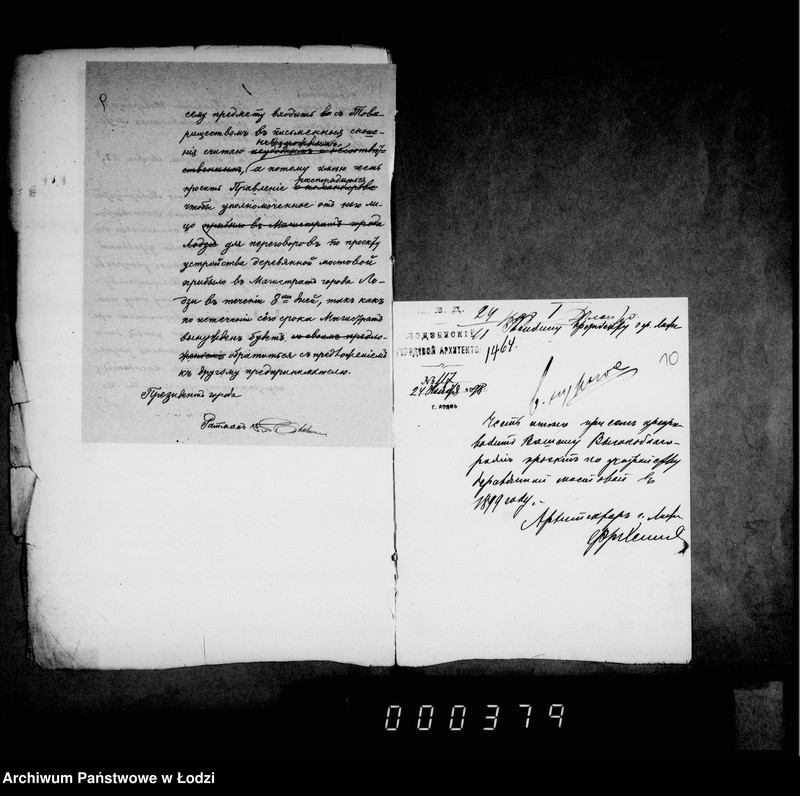 9
сему предмету входить въ съ Това
риществомъ въ письменныя сноше-
нія считаю невозможнымъ неудобнымъ и несоотвѣт
ственнымъ, а потому имѣю честь
просить Правленіе распорядиться о командировке
чтобы уполномоченное отъ него ли-
цо прибыло въ Магистратъ города
Лодзи для переговоровъ по проекту
устройства деревянной мостовой
прибыло въ Магистратъ города Ло-
дзи въ теченіи 8ми дней, такъ какъ
по истеченіи сего срока Магистратъ
вынужденъ будетъ со своимъ предло-
женіемъ обратиться съ предложеніемъ
къ другому предпринимателю.
Президентъ города
Ратманъ
М. В. Д.
ЛОДЗИНСКІЙ
ГОРОДОВОЙ АРХИТЕКТОРЪ
24
XI
1464.
Господину Президенту гор. Лодзи
10
№ 117
24 Ноября 1898
г. Лодзь
Честь имѣю при семъ препро-
водить Вашему Высокоблаго-
родію проектъ по устройству
деревянной мостовой въ
1899 году.
Архитекторъ г. Лодзи
000379
Archiwum Państwowe w Łodzi